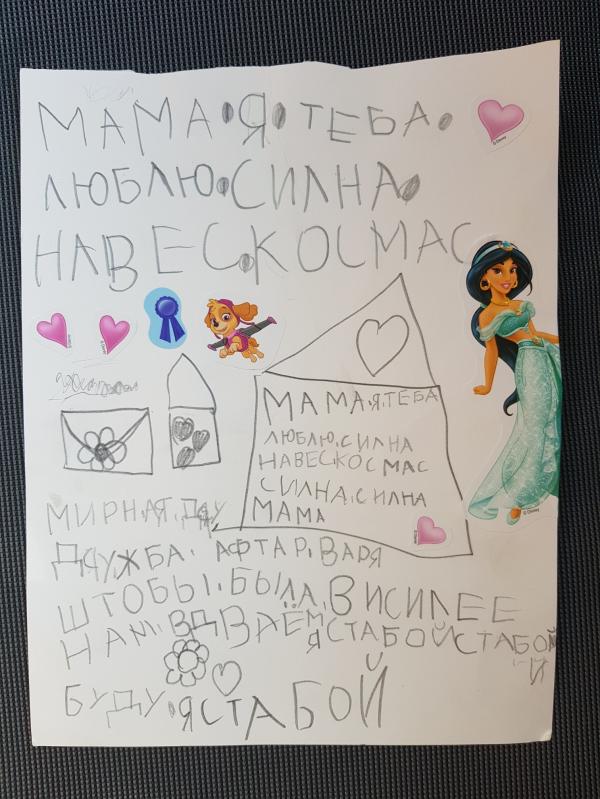 МАМА•Я•ТЕБА•
ЛЮБЛЮ•СИЛНА•
НАВЕС•КОСМАС
МАМА.Я.ТЕБА
ЛЮБЛЮ.СИЛНА
НАВЕСКОСМАС
СИЛНА.СИЛНА
МАМА
МИРНАЯ.ДРУ
ДРУЖБА. АФТАР.ВАРЯ
ШТОБЫ.БЫЛА.ВИСИЛЕЕ
НАМ.ВДВАЁМ
ЯСТАБОЙСТАБОЙ
Й
БУДУ•ЯСТАБОЙ
© Disney
© Disney
© Disney
© Disney
© Disney